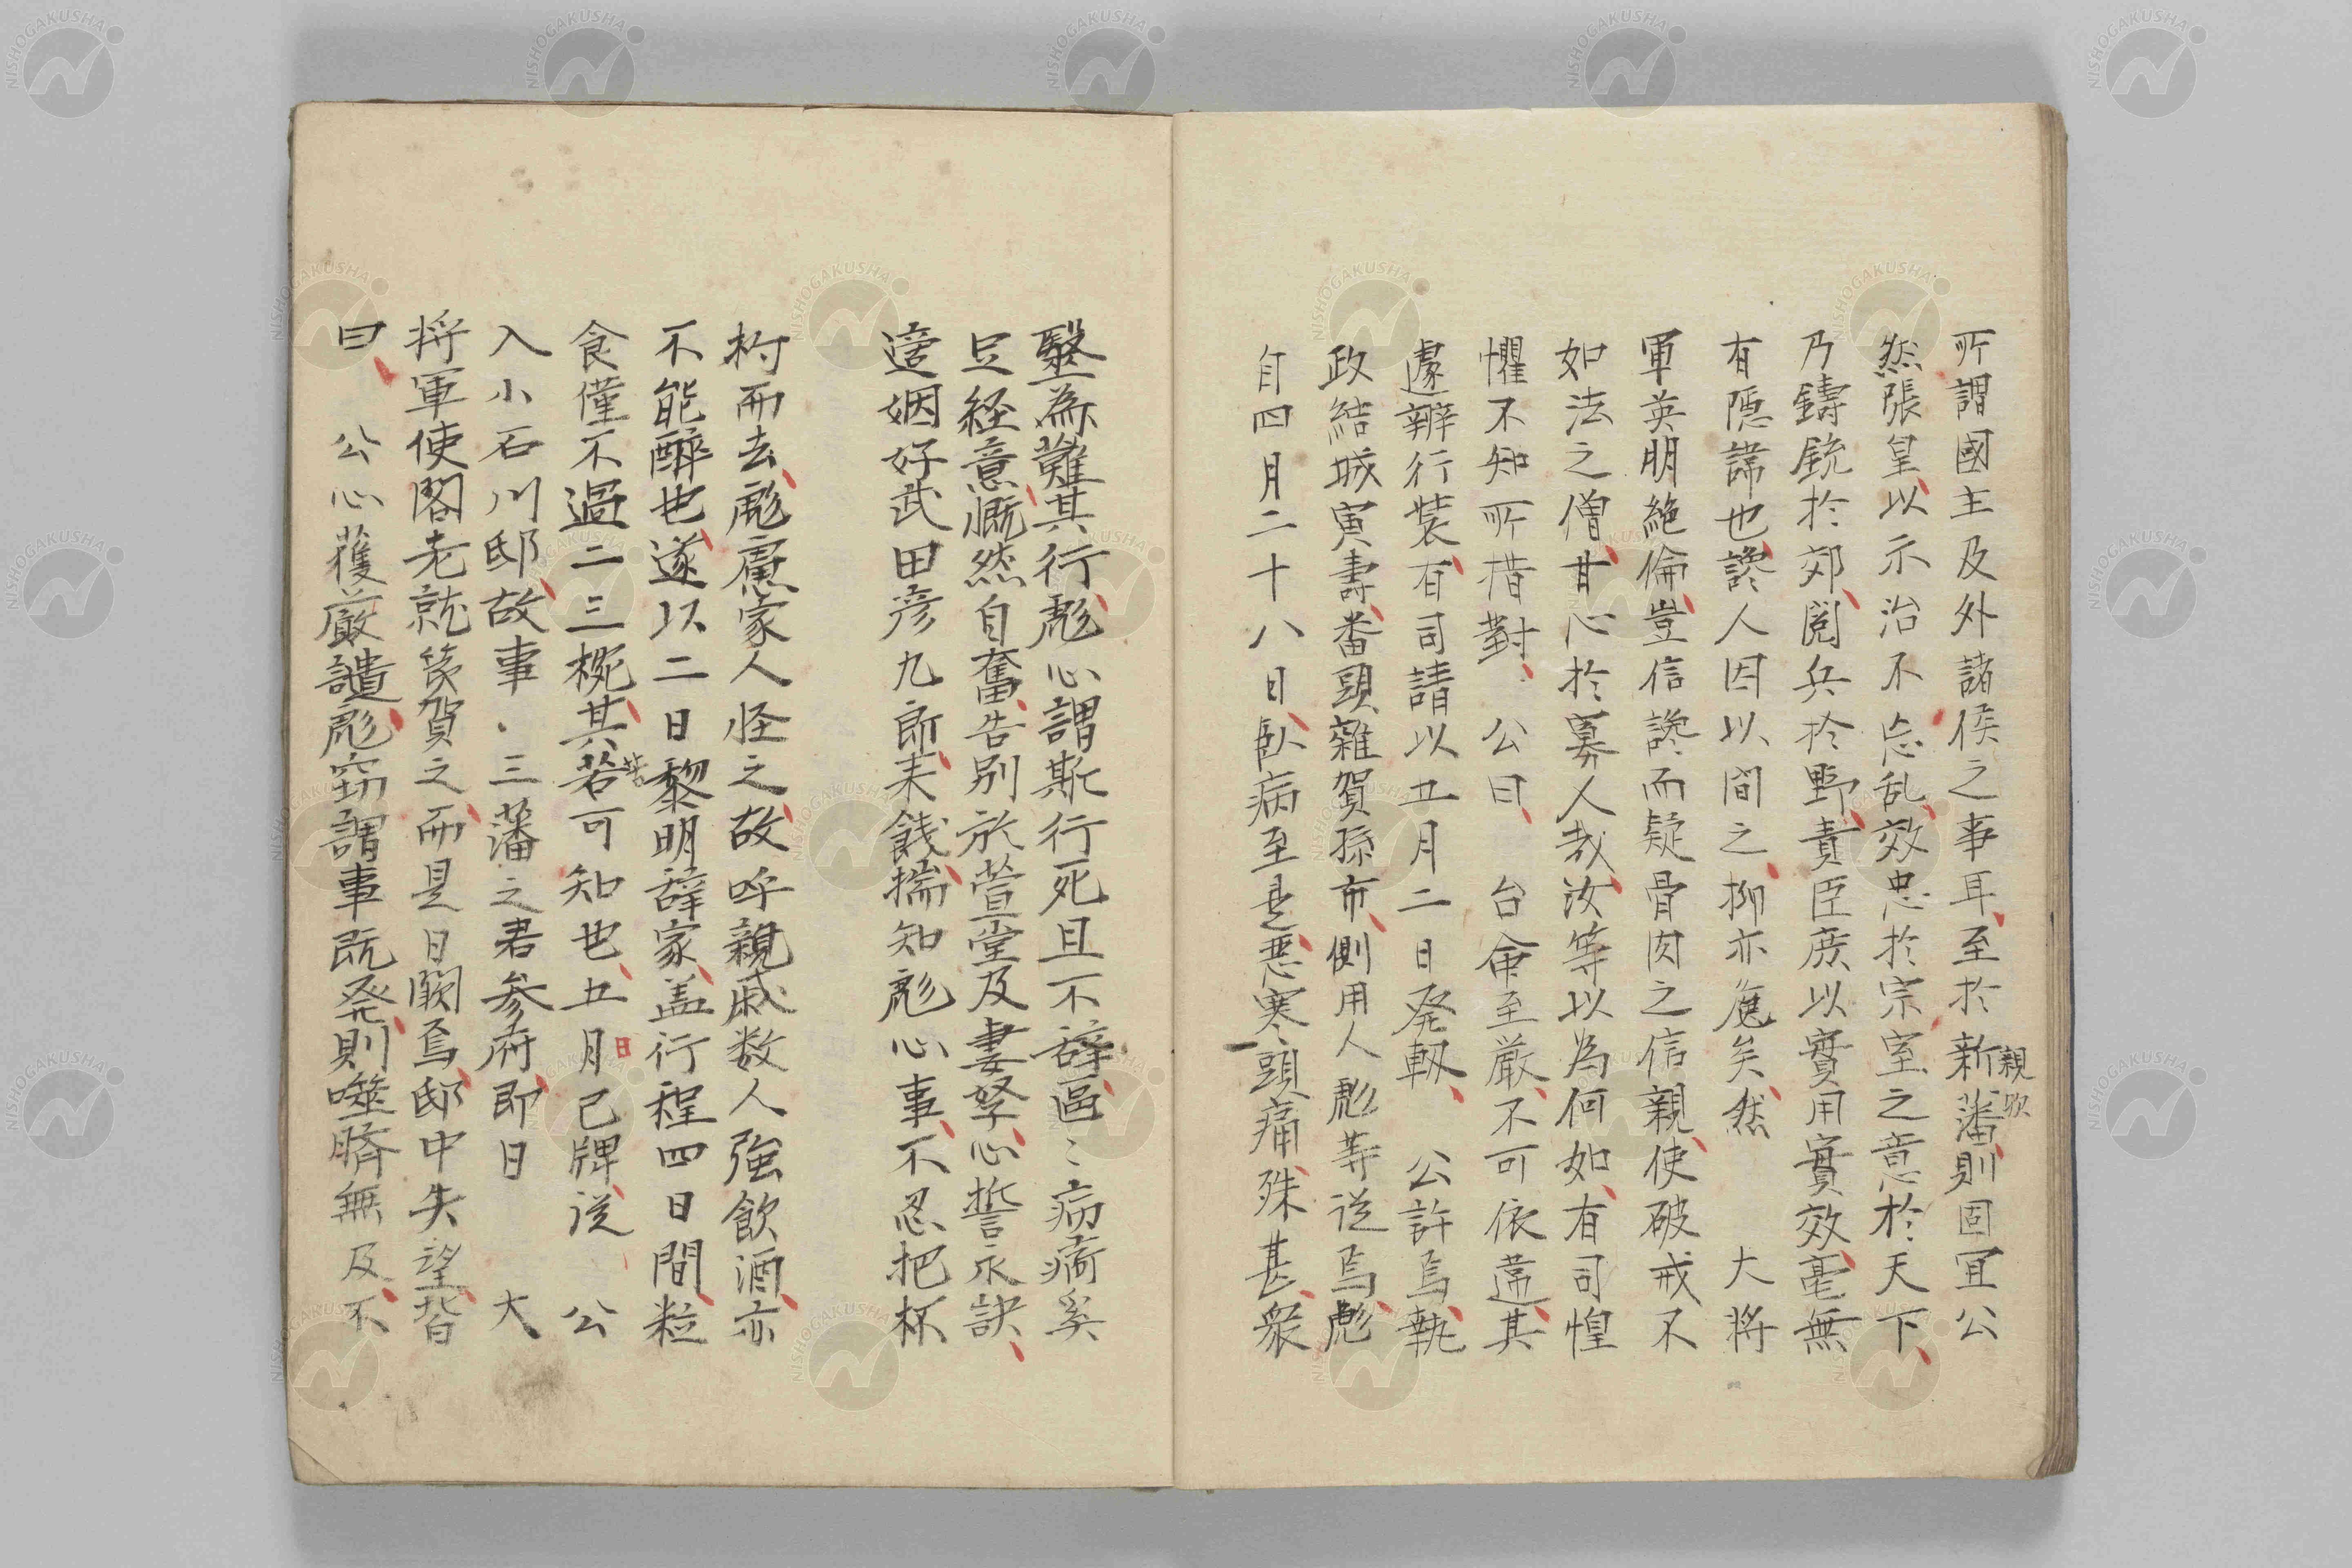 所謂國主及外諸侯之事耳至於新藩則固宜公
親歟
然張皇以示治不忘乱效忠於宗室之意於天下
乃鑄銃於郊閲兵於野責臣庶以實用實效毫無
有隠諱也讒人因以間之抑亦應矣然 大将
軍英明絶倫豈信讒而疑骨肉之信親使破戒不
如法之僧甘心於寡人哉汝等以為何如有司惶
懼不知所措對 公曰 台命至厳不可依違其
遽辨行装有司請以五月二日発軔 公許焉執
政結城寅壽番頭雜賀孫市側用人彪等従焉彪
自四月二十八日臥病至是悪寒頭痛殊甚衆
醫為難其行彪心謂斯行死且不辞區〻病痾奚
足経意慨然自奮告別於萱堂及妻孥心誓永訣
適姻好武田彦九郎来餞揣知彪心事不忍把杯
杓而去彪慮家人怪之故呼親戚数人強飲酒亦
不能醉也遂以二日黎明辞家盖行程四日間粒
食僅不過二三椀其若可知也五月己牌従 公
苦
日
入小石川邸故事三藩之君参府即日 大
将軍使閣老就第賀之而是日闕焉邸中失望皆
曰 公心獲厳譴彪窃謂事既発則噬臍無及不
NISHOGAKUSHA